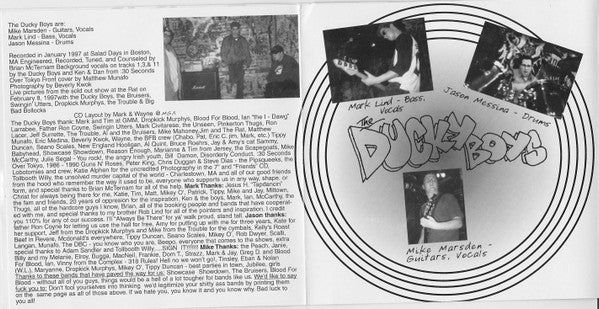 The Ducky Boys are:
Mike Marsden - Guitars, Vocals
Mark Lind - Bass, Vocals
Jason Messina - Drums
Recorded in January 1997 at Salad Days in Boston,
MA Engineered, Recorded, Tuned, and Counseled by
Brian McTernam Background vocals on tracks 1,3,& 11
by the Ducky Boys and Ken & Dan from :30 Seconds
Over Tokyo Front cover by Matthew Munafo
Photography by Beverly Kweck
Live pictures from the sold out show at the Rat on
February 8, 1997with the Ducky Boys, the Bruisers,
Swingin' Utters, Dropkick Murphys, the Trouble & Big
Bad Bollocks
CD Layout by Mark & Wayne
The Ducky Boys thank Mark and Tim at GMM, Dropkick Murphys, Blood For Blood, Ian "the I - Dawg"
Larrabee, Father Roe Coyne, Swingin Utters, Mark Civitarese, the Unseen, Pinkerton Thugs, Ron
Lacer, Jeff Surrette, The Trouble, Al and the Bruisers, Mike Mahoney, Jim and The Rat, Matthew
Munafo, Eric Medina, Beverly Kweck, Wayne, the BFB crew (Chabo, Pat, Eric C, jim, Mark, etc.) Tippy
Duncan, Seano Scales, New England Hooligan, Al Quint, Bruce Roehrs, Jay & Amy's cat Sammy,
Maxhead, Showcase Showdown, Reason Enough, Marianne & Tim from Jersey, the Scapegoats, Mike
McCarthy, Julie Segal - You rodd, the angry Irish youth, Bill Damon, Disorderly Conduct, :30 Seconds
Over Tokyo, 1986 - 1990 Guns N' Roses, Peter King, Chris Duggan & Steve Dias - the Pipsqueeks, the
Lobotomies and crew, Katie Alphen for the uncredited Photography in the 7" and "Friends" CD,
Tollbooth Willy, the unsolved murder capital of the world - Charlestown, MA and all of our good friends
from the hood who remember the way it used to be, everyone who supports us in any way, shape, or
form, and special thanks to Brian McTernam for all of the help. Mark Thanks: Jesus H. "Tapdancin'
Christ for always being there for me, Katie, Tim, Matt, Mikey O', Patrick, Tippy, Mike and Jay, Milltown,
the fam and friends, 20 years of oppression for the inspiration, Ken & the boys, Mark, Ian, McCarthy, the
Thugs, all of the hardcore guys i know, Brian, all of the booking people and bands that have cooperat-
ed with me, and special thanks to my brother Rob Lind for all of the pointers and inspiration. I credit
you 110% for any of our success. I'll "Always Be There" for ya' walk proud, stand tall. Jason thanks:
father Ron Coyne for letting us use the hall for free, Amy for putting up with me for three years, Kato for
her support, Jeff from the Dropkick Murphys and Mike from the Trouble for the cymbals, Kelly's Roast
Beef in Revere, Mcdonald's everywhere, Tippy Duncan, Seano Scales, Mikey O', Rob Dwyer, Scalt,
Langan, Munafo, The DBC - you know who you are, Beepo, everyone that comes to the shows, extra
special thanks to Adam Sandler and Tollbooth Willy......SIGN ITTT!!!! Mike Thanks: the Peach, Janie,
Billy and my Melanie, Elroy, Dugga, MacNeil, Frankie, Dom T., Strazz, Mark & Jay, Greg D. and Blood
For Blood, Ian, Vinny from the Complex - 318 Rules! Hell no we won't go!, Tinsley, Eban & Nolan
(W.L.), Maryanne, Dropkick Murphys, Mikey O', Tippy Duncan - best parties in town, Jubilee, girls
Thanks to these bands that have paved the way for us: Showcase Showdown, The Bruisers, Blood For
Blood - without all of you guys, things would be a hell of a lot tougher for bands like us. We'd like to say
fuck you to: Don't fool yourselves into thinking we'd legitimize your shitty ass bands by printing them
on the same page as all of those above. If we hate you, you know it and you know why. Bad luck to
you all!
Mark Lind - Bass,
Vocals
Jason Messina - Drums
The
DUCKY BOYS
Mike Marsden -
Guitars, Vocals